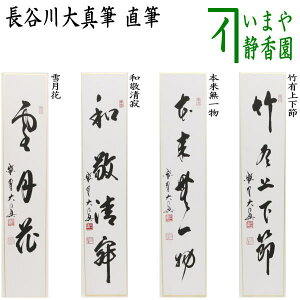 長谷川大真筆 直筆
いまや
静香園
雪月花
和敬清寂
本来無一物
竹有上下節
雪月花
和敬清寂
本来無一物
竹有上下節